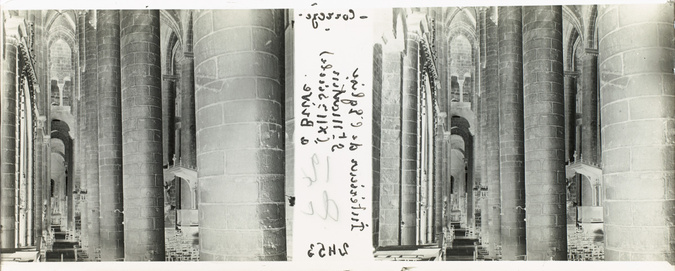 - Corrèze -
Intérieur de l'église
St Martin
(XIIe siècle)
à Brive.
2453